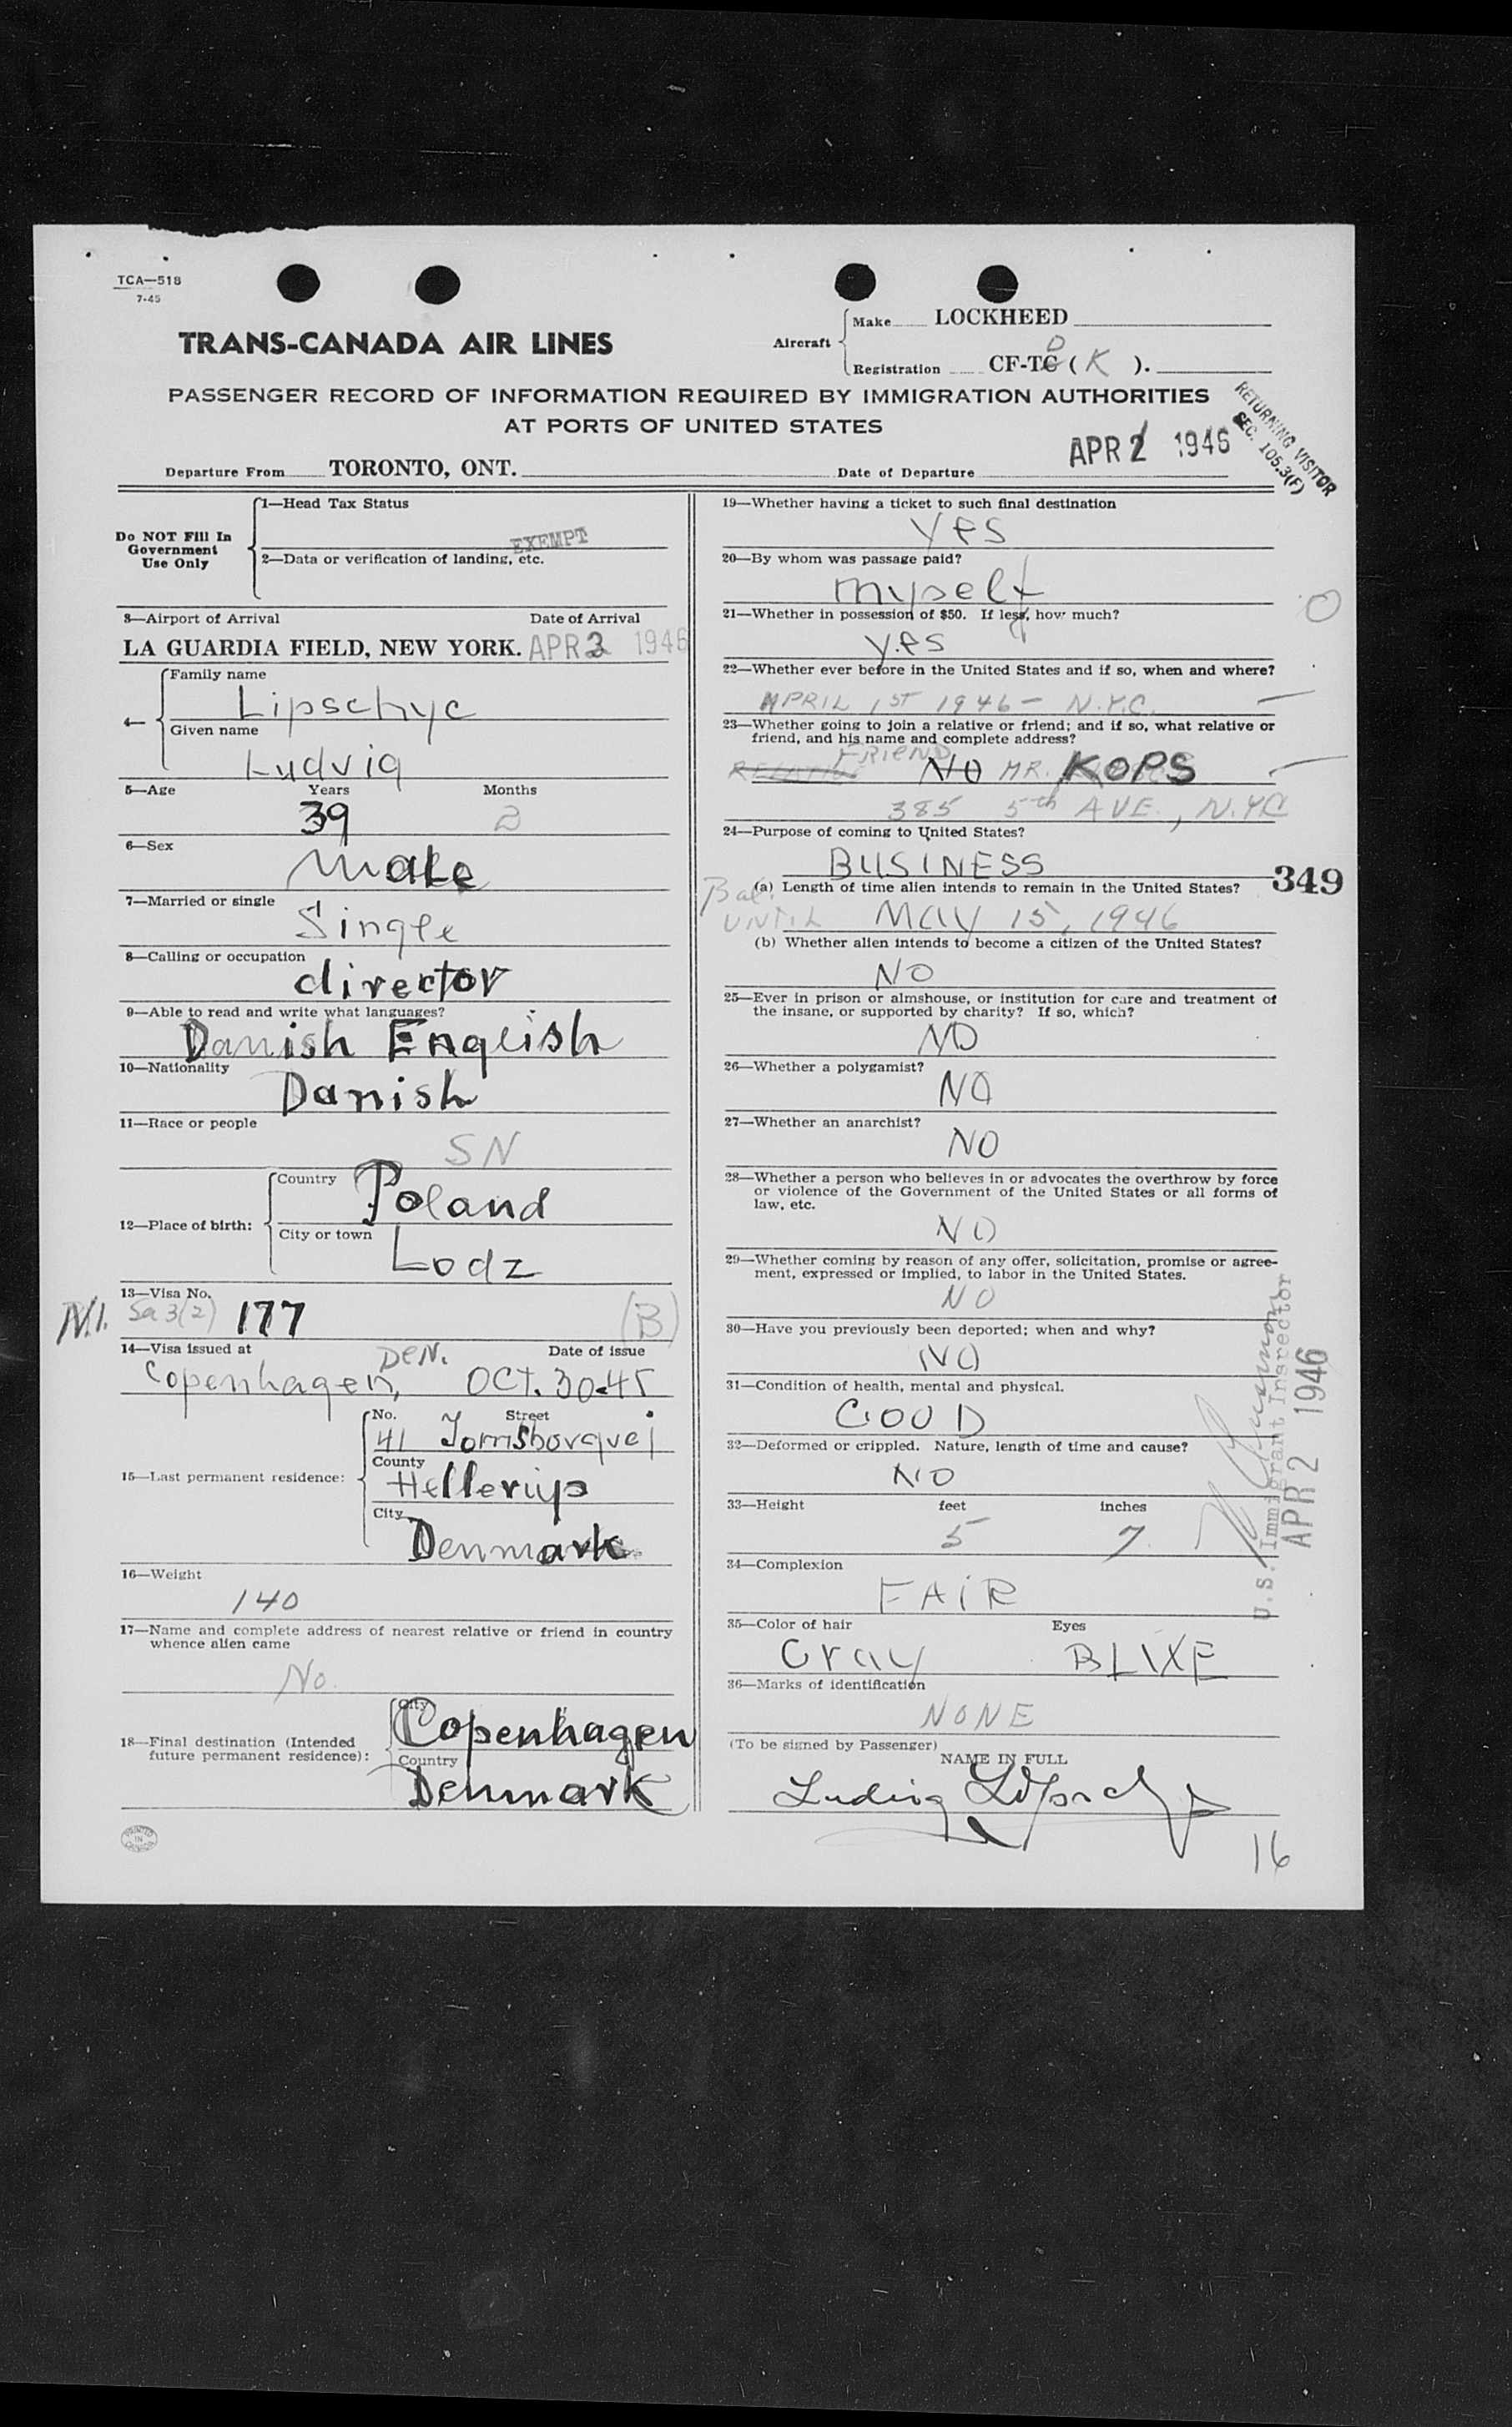 TCA—518
7-45
TRANS-CANADA AIR LINES
Aircraft
Make LOCKHEED
Registration CF-TG D ( K ).
PASSENGER RECORD OF INFORMATION REQUIRED BY IMMIGRATION AUTHORITIES
AT PORTS OF UNITED STATES
RETURNING VISITOR
SEC. 105.3(F)
Departure From TORONTO, ONT. Date of Departure APR 2 1946
Do NOT Fill In
Government
Use Only
1—Head Tax Status
EXEMPT
2—Data or verification of landing, etc.
3—Airport of Arrival Date of Arrival
LA GUARDIA FIELD, NEW YORK. APR 2 1946
4—
Family name
Lipschyc
Given name
Ludvig
5—Age Years Months
39 2
6—Sex
male
7—Married or single
Single
8—Calling or occupation
director
9—Able to read and write what languages?
Danish English
10—Nationality
Danish
11—Race or people
SN
12—Place of birth:
Country
Poland
City or town
Lodz
13—Visa No.
N.I. 3(2) 177 (B)
14—Visa issued at Date of issue
Copenhagen, DEN. OCT. 30-45
15—Last permanent residence:
No. Street
41
County
Hellerup
City
Denmark
16—Weight
140
17—Name and complete address of nearest relative or friend in country
whence alien came
No.
18—Final destination (Intended
future permanent residence):
City
Copenhagen
Country
Denmark
PRINTED
IN
CANADA
19—Whether having a ticket to such final destination
Yes
20—By whom was passage paid?
myself
21—Whether in possession of $50. If less, how much?
yes
O
22—Whether ever before in the United States and if so, when and where?
APRIL 1ST 1946 - N.Y.C.
23—Whether going to join a relative or friend; and if so, what relative or
friend, and his name and complete address?
RELATIVE FRIEND NO MR. KOPS
385 5th AVE., N.YC
24—Purpose of coming to United States?
BUSINESS
349
(a) Length of time alien intends to remain in the United States?
Bal. UNTIL MAY 15, 1946
(b) Whether alien intends to become a citizen of the United States?
NO
25—Ever in prison or almshouse, or institution for care and treatment of
the insane, or supported by charity? If so, which?
NO
26—Whether a polygamist?
NO
27—Whether an anarchist?
NO
28—Whether a person who believes in or advocates the overthrow by force
or violence of the Government of the United States or all forms of
law, etc.
NO
29—Whether coming by reason of any offer, solicitation, promise or agree-
ment, expressed or implied, to labor in the United States.
NO
30—Have you previously been deported; when and why?
NO
31—Condition of health, mental and physical.
GOOD
32—Deformed or crippled. Nature, length of time and cause?
NO
33—Height feet inches
5 7
34—Complexion
FAIR
35—Color of hair Eyes
Gray BLUE
36—Marks of identification
NONE
U.S. Immigrant Inspector
APR 2 1946
(To be signed by Passenger)
NAME IN FULL
Ludvig Lipschyc
16